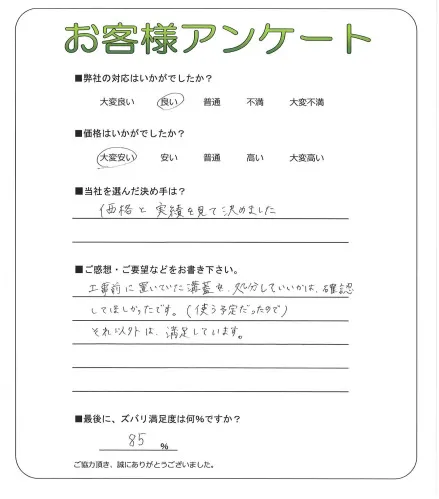 お客様アンケート
■弊社の対応はいかがでしたか？
大変良い 良い 普通 不満 大変不満
■価格はいかがでしたか？
大変安い 安い 普通 高い 大変高い
■当社を選んだ決め手は？
価格と実績を見て決めました
■ご感想・ご要望などをお書き下さい。
工事前に置いていた溝蓋を、処分していいかは、確認
してほしかったです。(使う予定だったので)
それ以外は、満足しています。
■最後に、ズバリ満足度は何%ですか？
85 %
ご協力頂き、誠にありがとうございました。